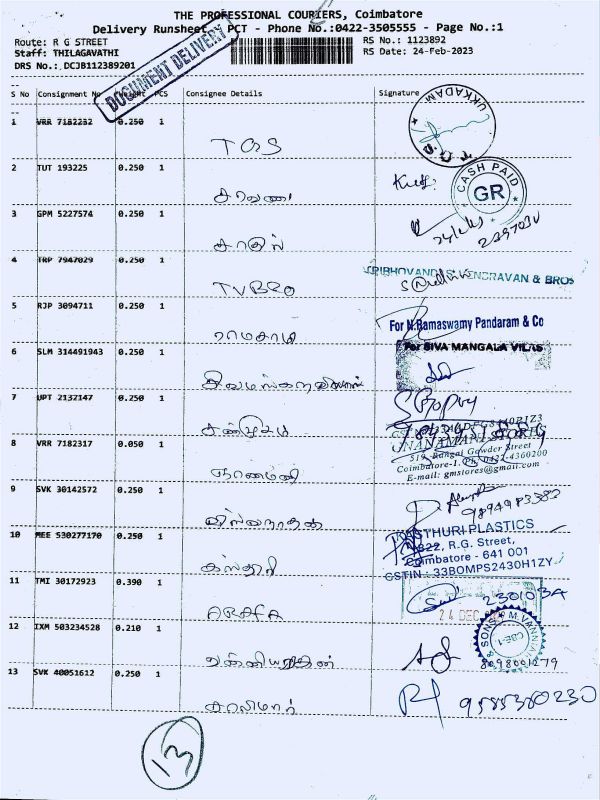 THE PROFESSIONAL COURIERS, Coimbatore
Delivery Runsheet PCT - Phone No.:0422-3505555 - Page No.:1
Route: R G STREET
RS No.: 1123892
Staff: THILAGAVATHI
RS Date: 24-Feb-2023
DRS No.: DCJB112389201
DOCUMENT DELIVERY
S No Consignment No Weight PCS Consignee Details Signature
1 VRR 7182232 0.250 1 TOS
UKKADAM T.O.S.
2 TUT 193225 0.250 1 சரவணா
CASH PAID GR
3 GPM 5227574 0.250 1
4 TRP 7947029 0.250 1 TVBRO
& BROS
5 RJP 3094711 0.250 1 ராமசாமி
For N.Ramaswamy Pandaram & Co
6 SLM 314491943 0.250 1
For SIVA MANGALA VILAS
7 UPT 2132147 0.250 1
8 VRR 7182317 0.050 1 ஞானமணி
GNANAMANI STORES
519, Rangai Gowder Street
Coimbatore-1. Ph: 0422-4360200
E-mail: gmstores@gmail.com
9 SVK 30142572 0.250 1 விஸ்வநாதன்
9894983382
10 MEE 530277170 0.250 1 கஸ்தூரி
KASTHURI PLASTICS
R.G. Street,
Coimbatore - 641 001
GSTIN : 33BOMPS2430H1ZY
11 TMI 30172923 0.390 1 ARAFA
230103A
24 DEC
12 IXM 503234528 0.210 1
& SONS M.VANNIA
CBE-1
8098001279
13 SVK 40051612 0.250 1 சாலிமார்
9585380230
13